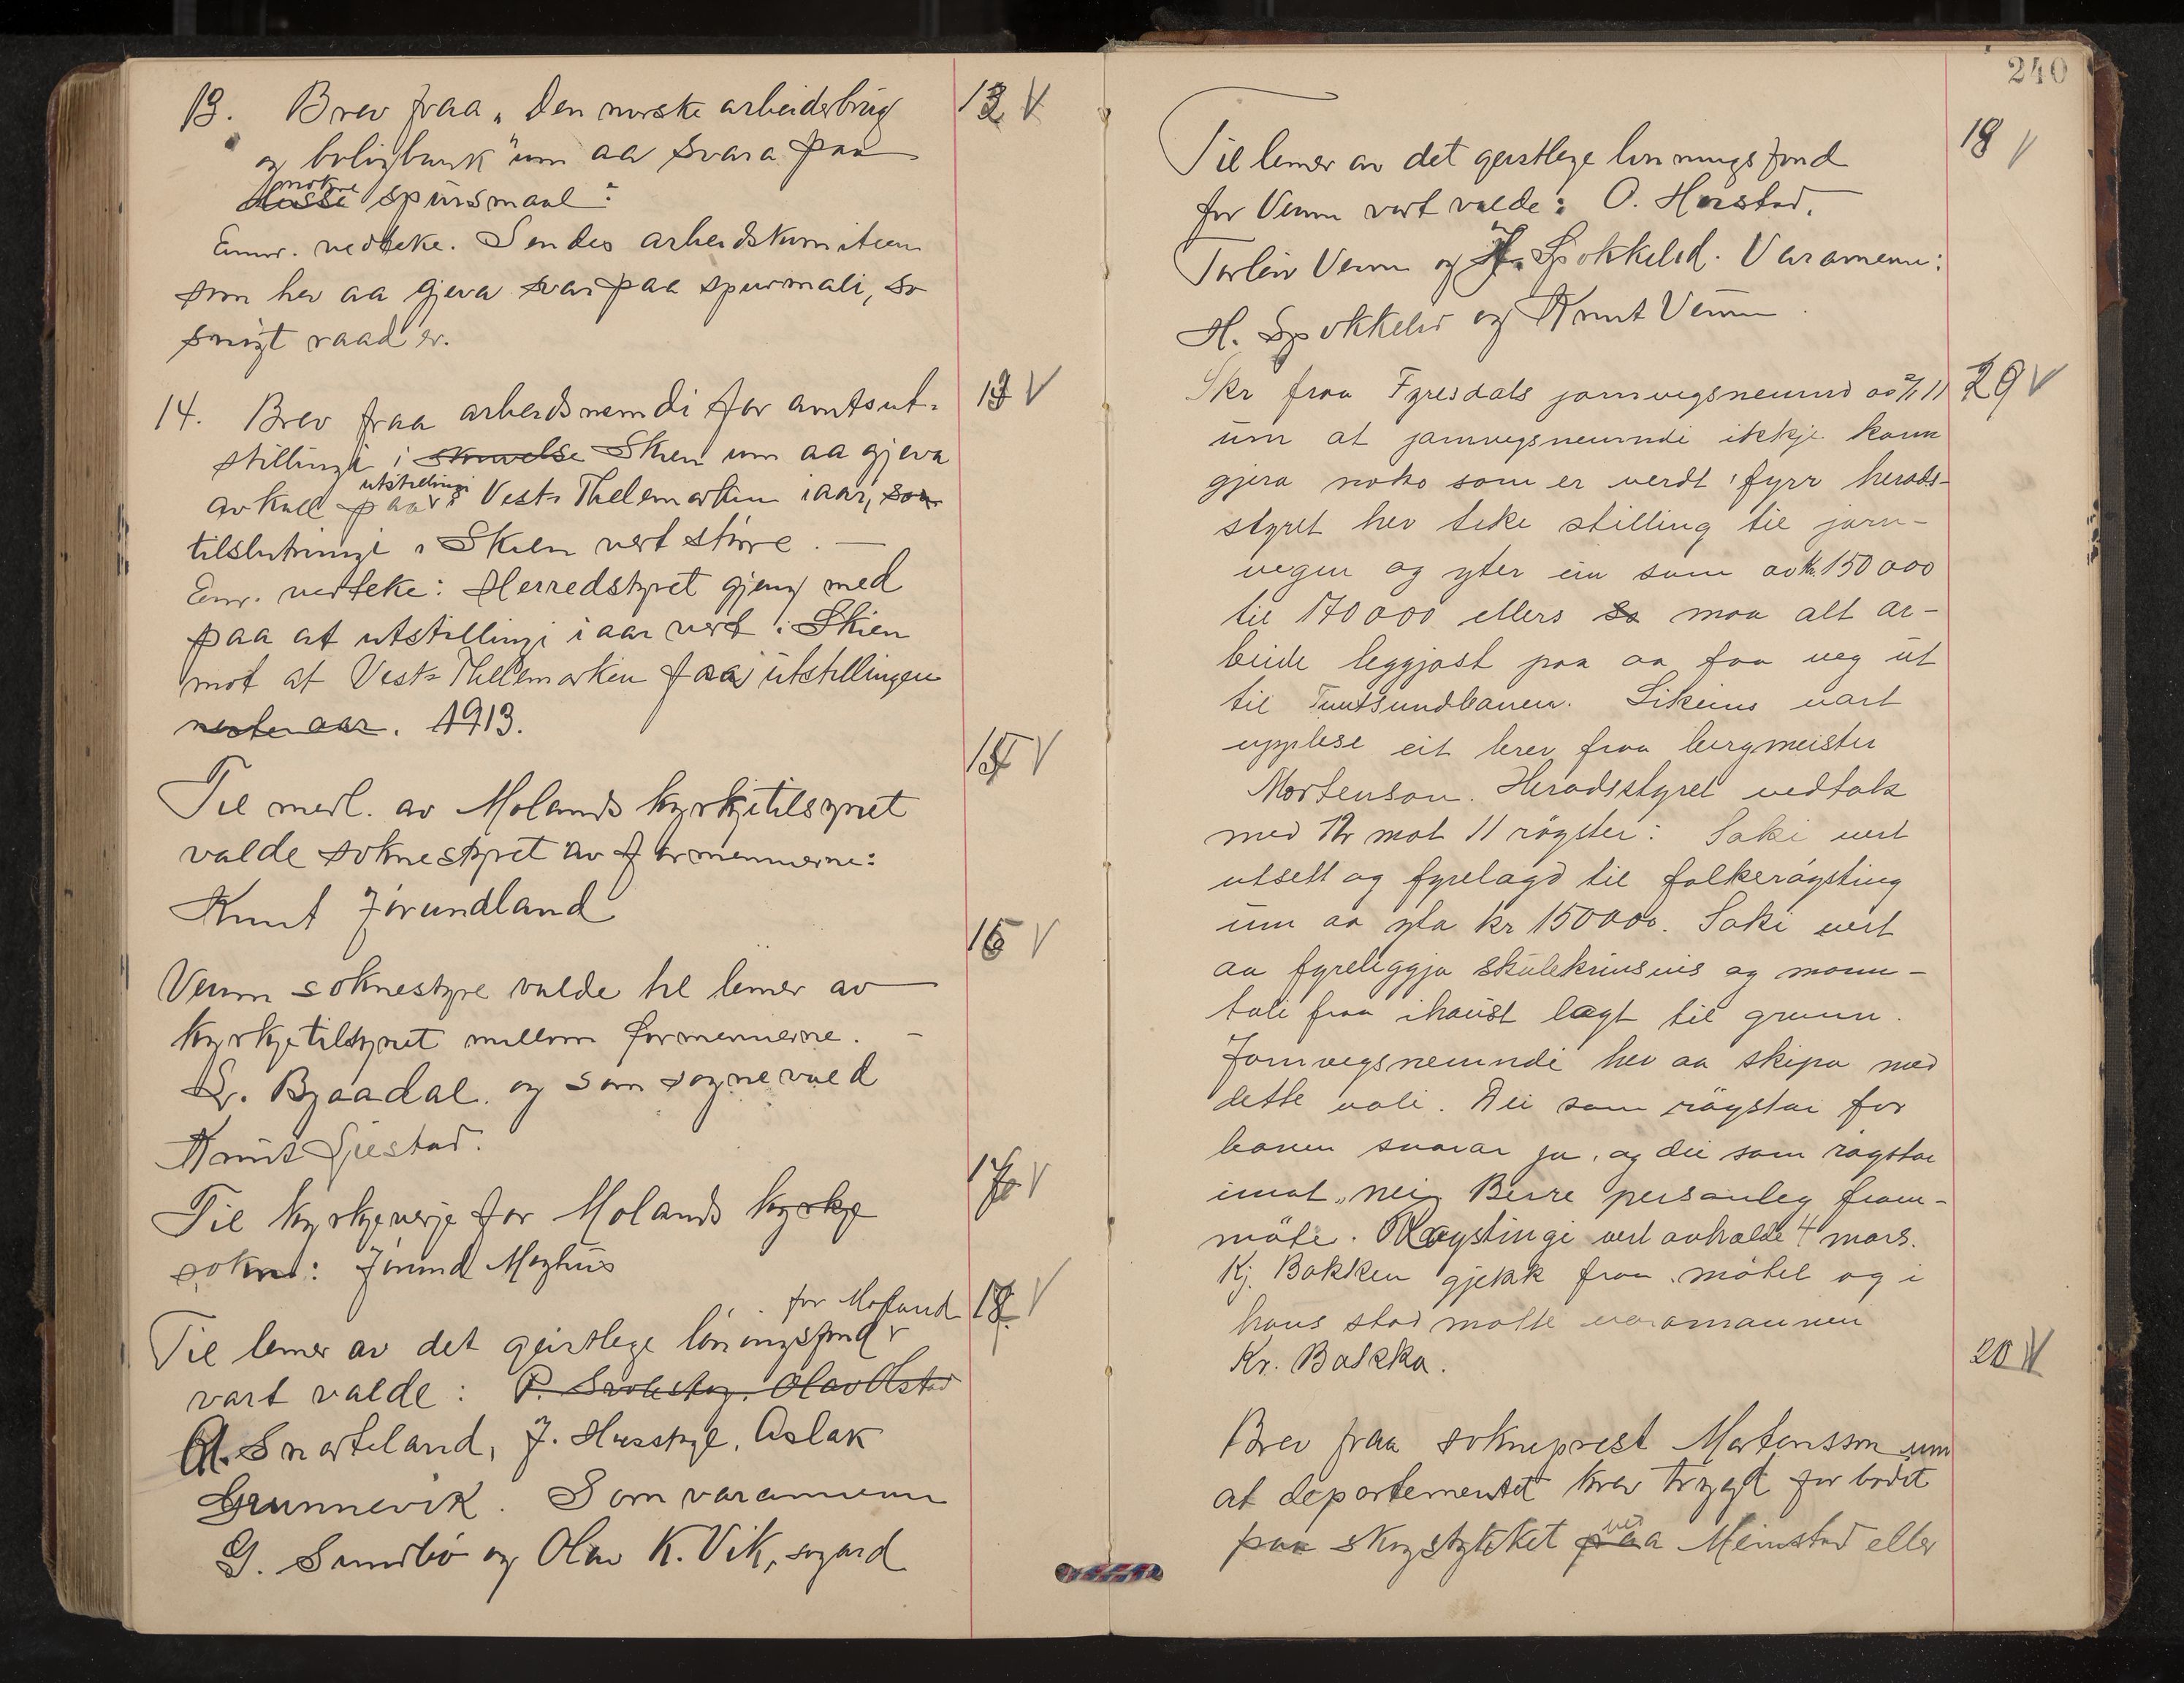 13. Brev fraa "Den norske arbeiderbrug
og boligbank" um aa svara paa
nokre spursmaal:
Einr. vedteke. Sendes arbeidskomiteen
som hev aa gjeva svar paa spursmali, so
snigt raad er.
14. Brev fraa arbeidsnemdi for amtsut-
stillingi i Skien um aa gjeva
avkall paa utstillingi i Vest-Thelemarken iaar, som
tilslutningi i Skien vert større. —
Einr. vedteke: Herredstyret gjeng med
paa at utstillingi i aar vert i Skien
mot at Vest-Thelemarken faar utstillingen
neste aar. 1913.
Til medl. av Molands kyrkjetilsynet
valde soknestyret av formennerne:
Knut Jørundland
Veum soknestyre valde til lemer av
kyrkjetilsynet millom formennerne. —
Gr. Bjaadal. og som sognevald
Knut Listad.
Til kyrkjeverje for Molands kyrkje
sokn: Jørund Moghus
for Moland
Til lemer av det geistlege lönningsfond
vart valde: Olav Olstad
Snarteland, J. Husstyl, Aslak
Grunnevik. Som varamenn
G. Sundbö og Olav K. Vik, søgard
13 V
14 V
15 V
16 V
17 V
18 V
240
Til lemer av det geistlege lönningsfond
for Veum vart valde: O. Haustad,
Torleiv Veum og H. Spokkelid. Varamenn:
H. Spokkelid og Knut Veum.
Skr fraa Fyresdals jarnvegsnemnd av 2/1 11
um at jarnvegsnemndi ikkje kann
gjera noko som er verdt fyrr herads-
styret hev teke stilling til jarn-
vegen og yter ein sum av kr. 150 000
til 170 000 ellers so maa alt ar-
beide leggjast paa aa faa veg ut
til Treutsundbanen. Likeins vart
upplese eit brev fraa bergmeister
Mortenson. Heradsstyret vedtok
med 12 mot 11 röyster: Saki vert
utsett og fyrelagd til folkeröysting
um aa yta kr 150 000. Saki vert
aa fyreliggja skulekrinsvis og mann-
tali fraa ihaust lagt til grunn.
Jarnvegsnemndi hev aa skipa med
dette vali. Dei som röystar for
banen svarar ja, og dei som röystar
imot "nei". Berre personleg fram-
möte. Röystingi vert avhalde 4 mars.
Kj. Bakken gjekk fraa mötet og i
hans stad mötte varamannen
Kr. Bakka.
Brev fraa sokneprest Mortensson um
at departementet krev trygd for bodet
paa skogstykket ved Meinstad eller
19 V
29 V
20 V